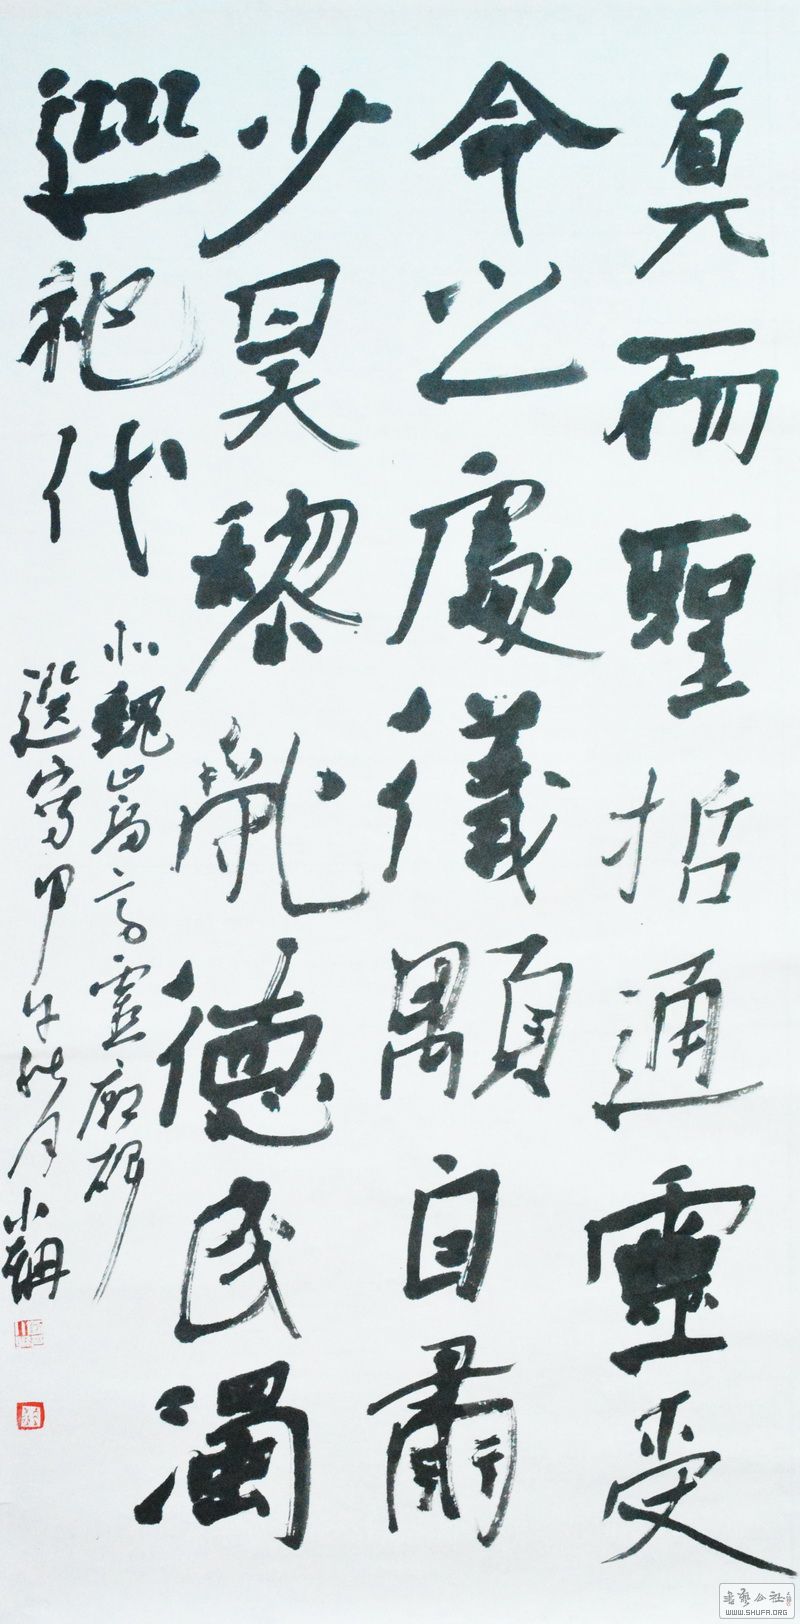 真而聖哲通靈受
命之處儀顒自肅
少昊黎亂德民濁
巡祀代
北魏嵩高靈廟碑
選寫甲午秋月小
書藝公社
WWW.SHUFA.ORG